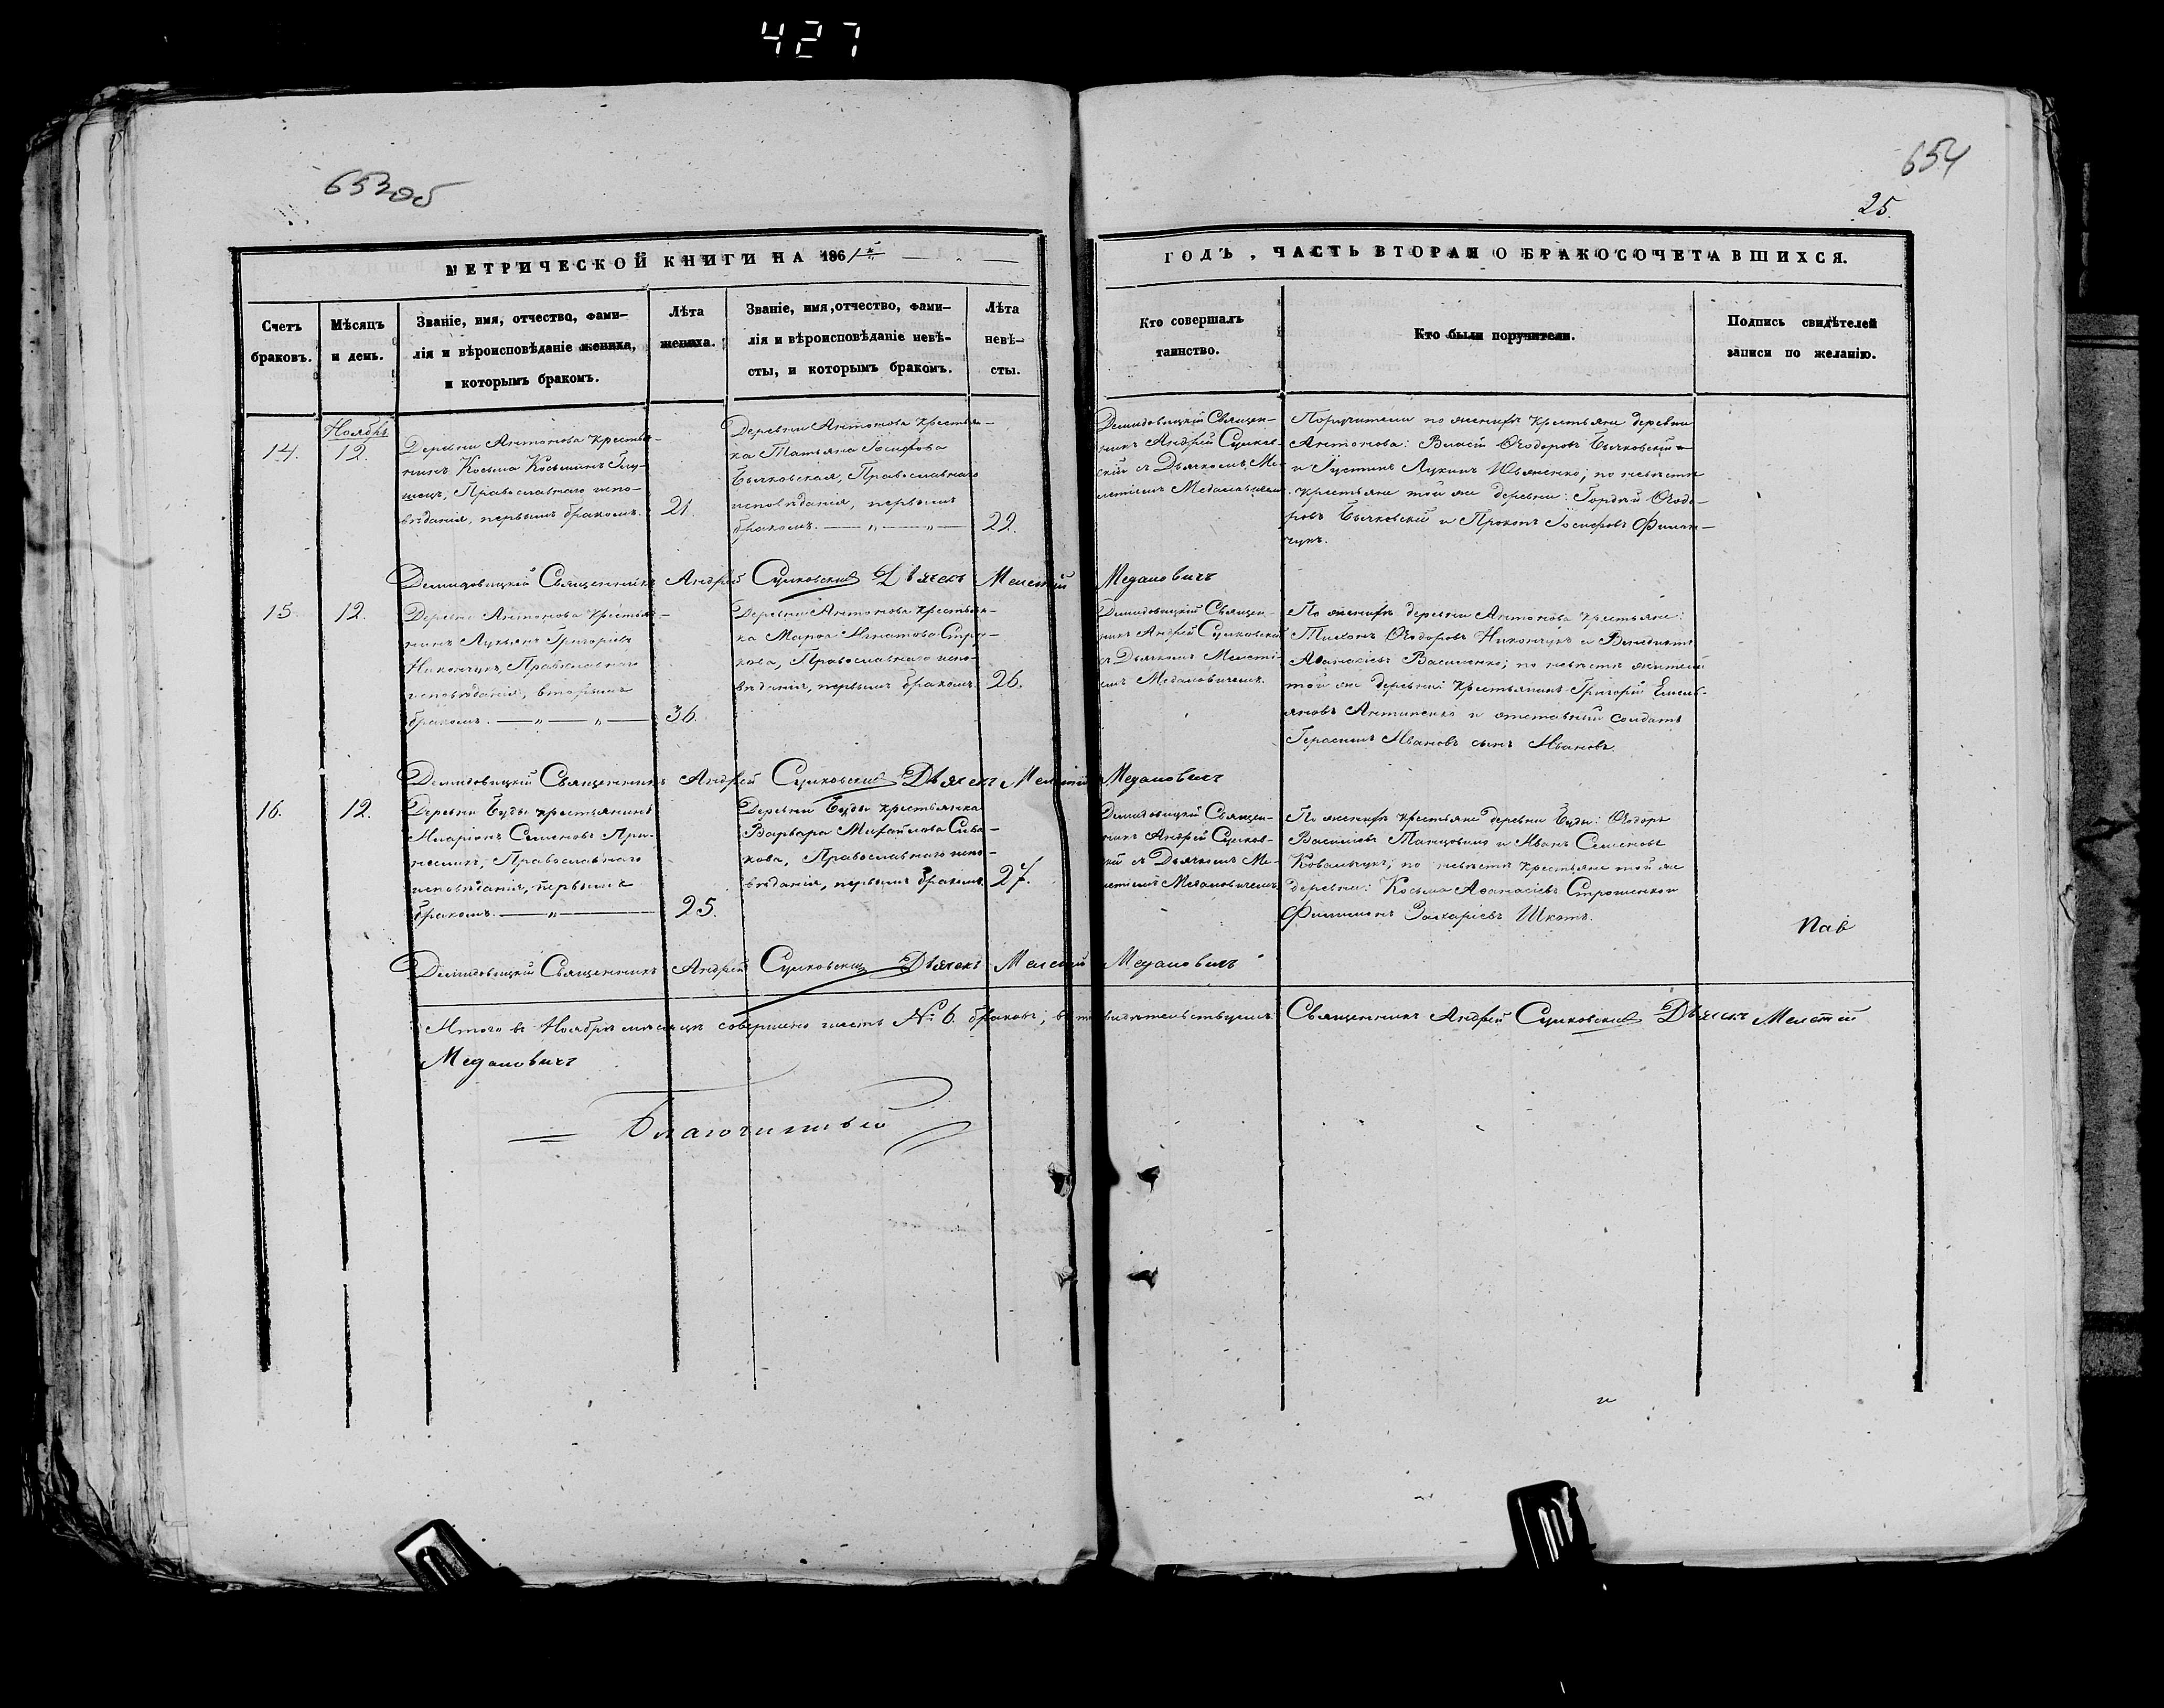 427
653об
654
25.
МЕТРИЧЕСКОЙ КНИГИ НА 1861й
ГОДЪ, ЧАСТЬ ВТОРАЯ О БРАКОСОЧЕТАВШИХСЯ.
Счетъ
браковъ.
Мѣсяцъ
и день.
Званіе, имя, отчество, фами-
лія и вѣроисповѣданіе жениха,
и которымъ бракомъ.
Лѣта
жениха.
Званіе, имя, отчество, фами-
лія и вѣроисповѣданіе невѣ-
сты, и которымъ бракомъ.
Лѣта
невѣ-
сты.
Кто совершалъ
таинство.
Кто были поручители.
Подпись свидѣтелей
записи по желанію.
14.
Ноябрь
12.
Деревни Антонова крестья-
нинъ Косьма Косьминъ
Православнаго испо-
вѣданія, первымъ бракомъ.
21.
Деревни Антонова крестьян-
ка Татьяна Іосифова
Бычковская, Православнаго
исповѣданія, первымъ
бракомъ. — „ — „ —
22.
Демидовицкій Священ-
никъ Андрей Сулков-
скій съ Дьячкомъ Ме-
летіемъ
Поручители по женихѣ крестьяне деревни
Антонова: Власій Ѳеодоровъ Бычковскій
и Іустинъ Лукинъ по невѣстѣ
крестьяне той же деревни: Гордѣй Ѳеодо-
ровъ Бычковскій и Прокопъ Іосифовъ Филон-
чукъ.
Демидовицкій Священникъ Андрей Сулковскій Дьячекъ Мелетій
15
12.
Деревни Антонова крестья-
нинъ Лукьянъ Григорьевъ
Никончукъ, Православнаго
исповѣданія, вторымъ
бракомъ. — „ — „ —
36.
Деревни Антонова крестьян-
ка Марѳа Игнатова Стра-
кова, Православнаго испо-
вѣданія, первымъ бракомъ.
26.
Демидовицкій Священ-
никъ Андрей Сулковскій
съ Дьячкомъ Мелеті-
емъ
По женихѣ деревни Антонова крестьяне:
Тихонъ Ѳеодоровъ Никончукъ и Венедиктъ
Аѳанасіевъ Василенко; по невѣстѣ жители
той же деревни крестьянинъ Григорій Емель-
яновъ Антипенко и отставный солдатъ
Герасимъ Ивановъ сынъ Ивановъ.
Демидовицкій Священникъ Андрей Сулковскій Дьячекъ Мелетій
16.
12.
Деревни Буды крестьянинъ
Иларіонъ Семеновъ
Православнаго
исповѣданія, первымъ
бракомъ. — „ —
25.
Деревни Буды крестьянка
Варвара Михайлова Сива-
кова, Православнаго испо-
вѣданія, первымъ бракомъ.
27.
Демидовицкій Священ-
никъ Андрей Сулков-
скій съ Дьячкомъ Ме-
летіемъ
По женихѣ крестьяне деревни Буды: Ѳеодоръ
Василіевъ и Иванъ Семеновъ
Ковальчукъ; по невѣстѣ крестьяне той же
деревни: Косьма Аѳанасіевъ Строченко и
Филимонъ Захаріевъ Шкотъ.
Демидовицкій Священникъ Андрей Сулковскій Дьячекъ Мелетій
Итого въ Ноябрѣ мѣсяцѣ совершено шесть № 6. браковъ; въ томъ свидѣтельствуемъ: Священникъ Андрей Сулковскій Дьячекъ Мелетій
Благочинный